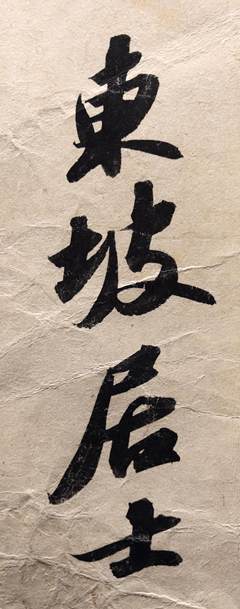 東坡居士